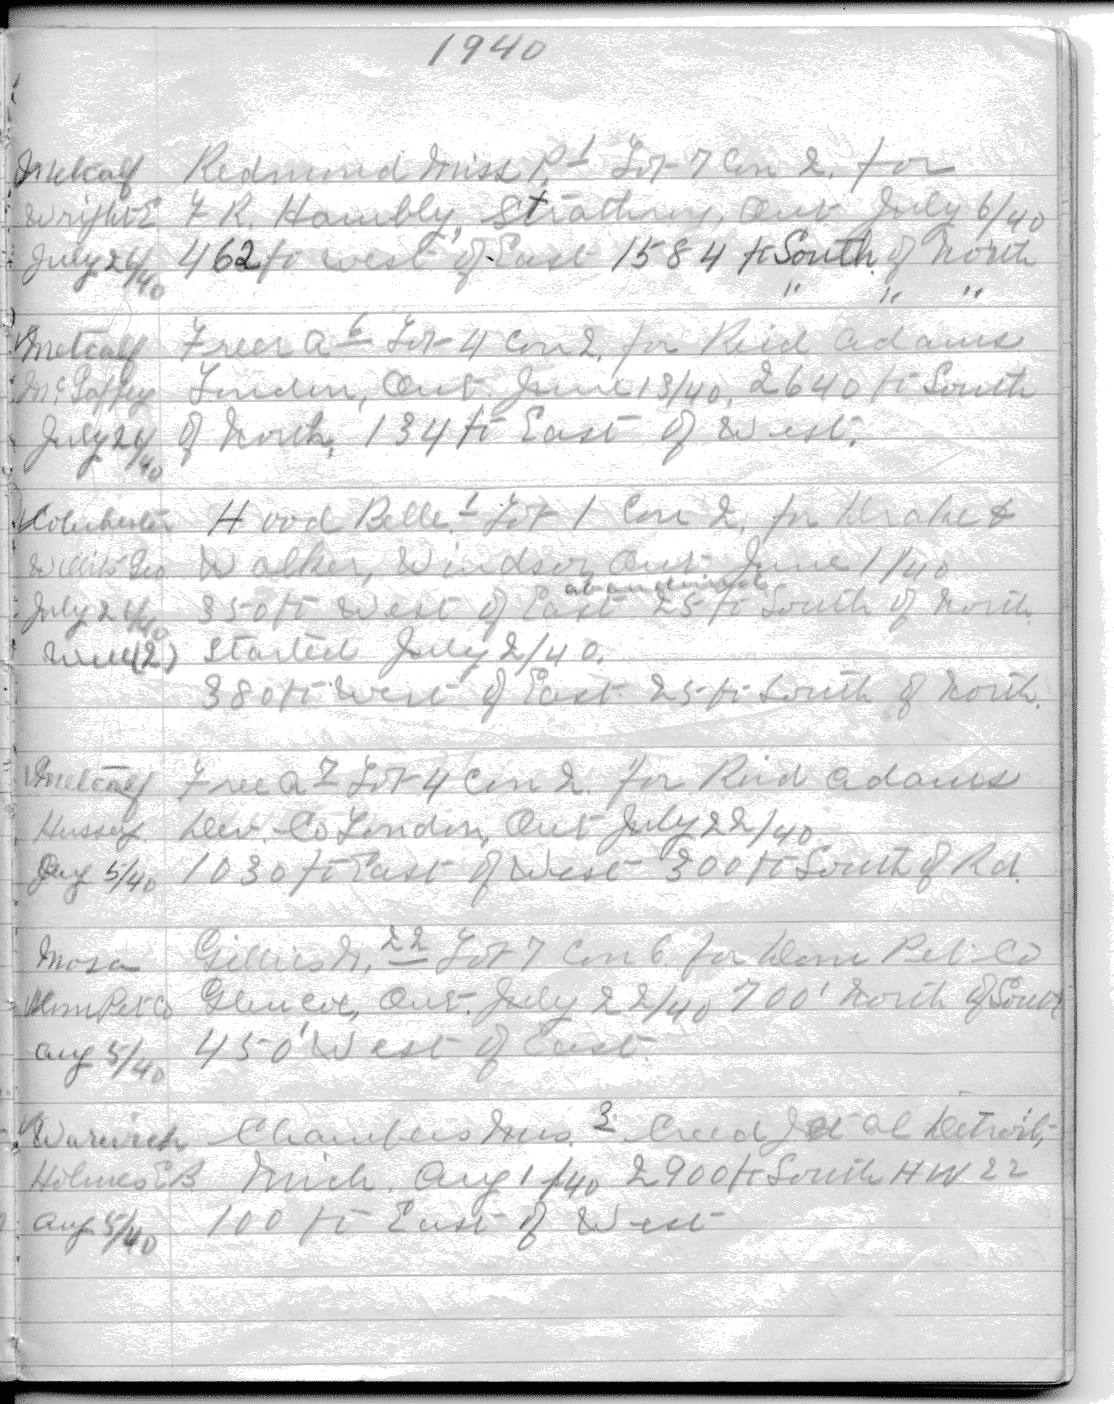 1940
Metcalf Redmond Miss P. 1 Lot 7 Con 2. for
Wright E F R. Hambly, Strathroy, Ont July 6/40
July 26/40 462 ft west of East 1584 ft South of North
" " "
Metcalf Freer A 6 Lot 4 Con 2. for Reid Adams
McGaffey London, Ont June 13/40, 2640 ft South
July 26/40 of North, 134 ft East of West.
Colchester Hood Belle. 1 Lot 1 Con 2, for Drake &
Willits Geo Walker, Windsor, Ont June 1/40
abandoned
July 26/40 350 ft West of East 25 ft South of North.
Well (2) Started July 2/40.
380 ft West of East 25 ft South of North.
Metcalf Freer A 7 Lot 4 Con 2. for Reid Adams
Hussey Dev. Co London, Ont July 22/40
Aug 5/40 1030 ft East of West 300 ft South of Rd.
Mosa Gillies N. 22 Lot 7 Con 6. for Dom Pet Co
Dom Pet Co Glencoe, Ont. July 22/40 700' North of South
Aug 5/40 450' West of East.
Warwick Chambers Mrs. 3 Creed J et al Detroit,
Holmes E B Mich. Aug 1/40 2900 ft South HW 22
Aug 5/40 100 ft East of West